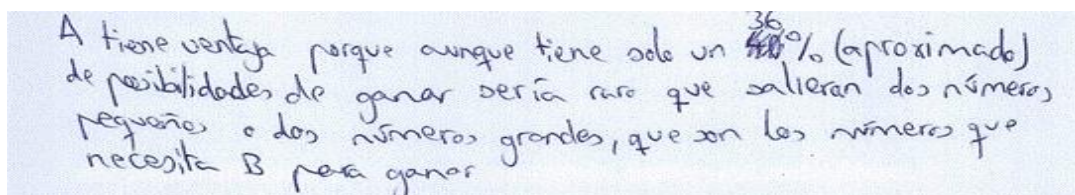 A tiene ventaja porque aunque tiene solo un 36% (aproximado)
de posibilidades de ganar sería raro que salieran dos números
pequeños o dos números grandes, que son los números que
necesita B para ganar